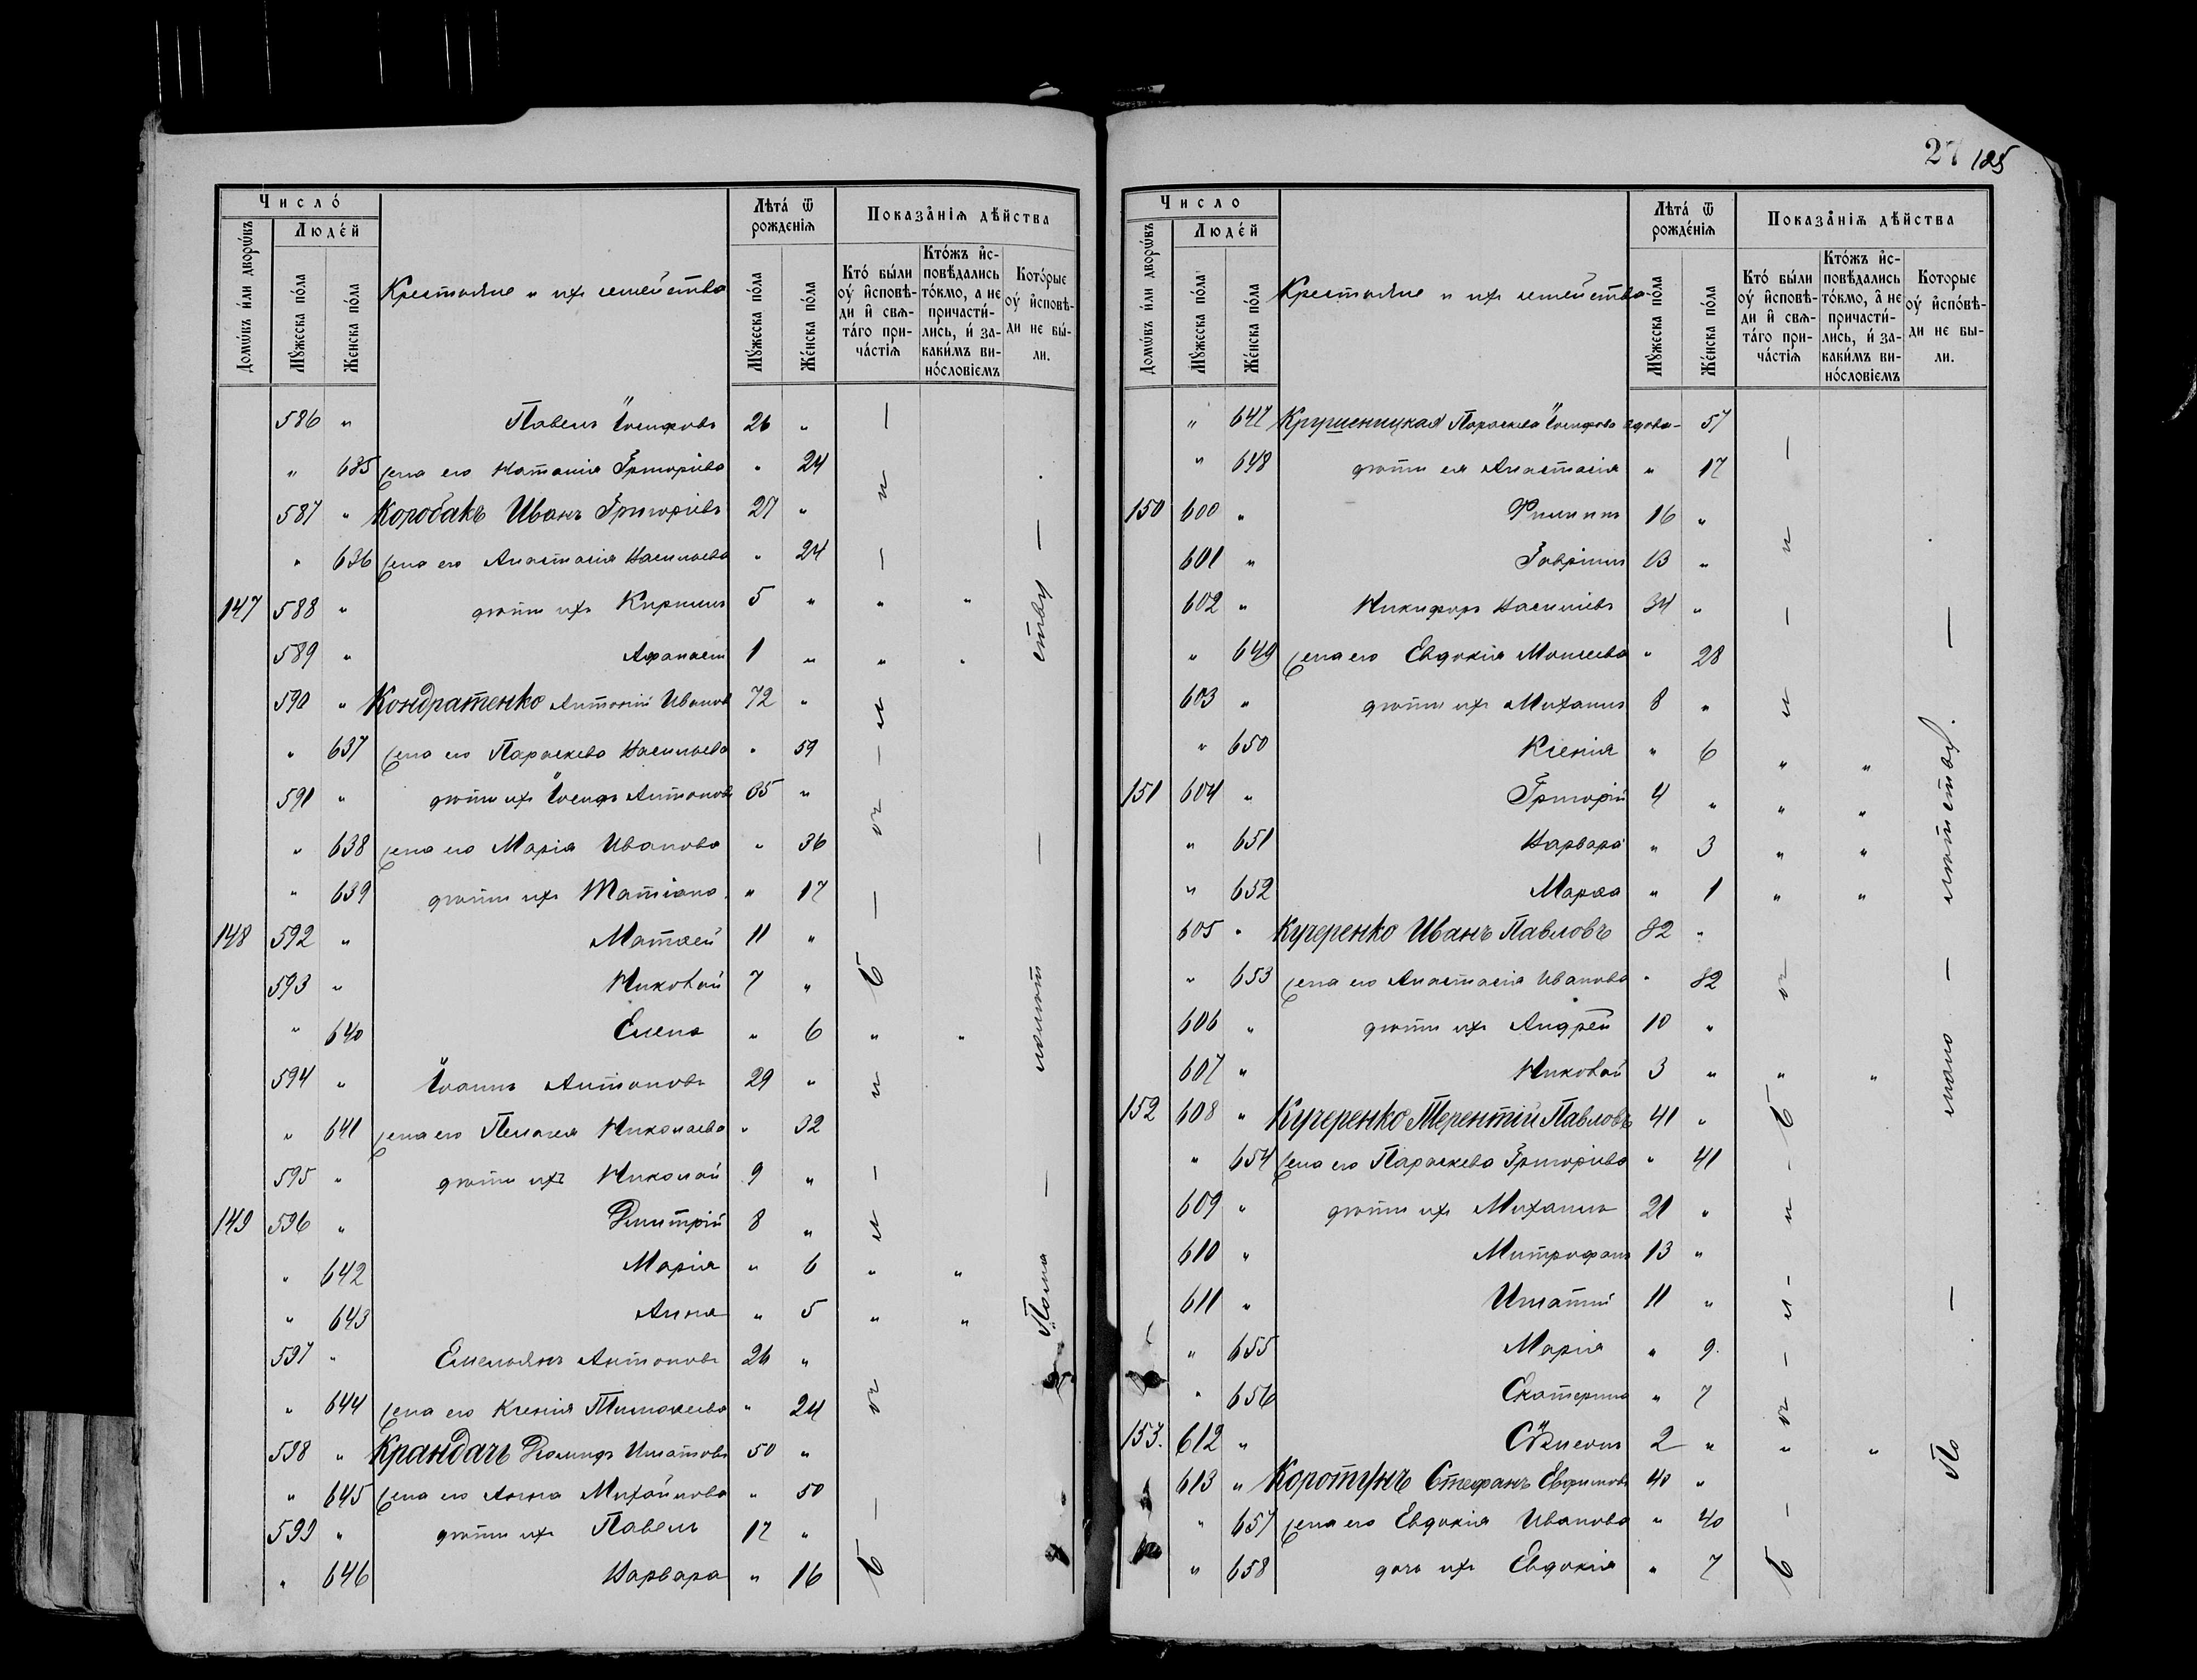 27 185
Число́
Людей
Домѡвъ и҆лѝ дворѡ́въ
Мꙋжеска по́ла
Же́нска по́ла
Крестьяне и ихъ семейства
Лѣта̀ ѿ рожденїѧ
Мꙋжеска по́ла
Же́нска по́ла
Показа̑нїѧ дѣ́йства
Кто̀ бы́ли оу҆ и҆сповѣди и҆ свѧта́гѡ причастїѧ
Кто́жъ и҆сповѣдались то́кмо, а не причасти́лись, и҆ за каки́мъ вино́словїемъ
Кото́рые оу҆ и҆сповѣди не бы́ли.
586 " Павелъ Іосифовъ 26 "
" 635 жена его Наталія Григоріева " 24
587 " Коробакъ Иванъ Григоріевъ 27 "
" 636 жена его Анастасія Васильева " 24
147 588 " дѣти ихъ Кириллъ 5 " " "
589 " Афанасій 1 " " "
590 " Кондратенко Антоній Ивановъ 72 "
" 637 жена его Параскева Васильева " 59
591 " дѣти ихъ Іосифъ Антоновъ 35 "
" 638 жена его Марія Иванова " 36
" 639 дѣти ихъ Татіана " 17
148 592 " Матѳей 11 "
593 " Николай 7 "
" 640 Елена " 6 " "
594 " Іоаннъ Антоновъ 29 "
" 641 жена его Пелагея Николаева " 32
595 " дѣти ихъ Николай 9 "
149 596 " Димитрій 8 "
" 642 Марія " 6 " "
" 643 Анна " 5 " "
597 " Емельянъ Антоновъ 26 "
" 644 жена его Ксенія Тимоѳеева " 24
598 " Крандачъ Іосифъ Игнатовъ 50 "
" 645 жена его Анна Михайлова " 50
599 " дѣти ихъ Павелъ 17 "
" 646 Варвара " 16
Число
Людей
Домѡвъ и҆лѝ дворѡ́въ
Мꙋжеска по́ла
Же́нска по́ла
Крестьяне и ихъ семейства
Лѣта̀ ѿ рожде́нїѧ
Мꙋжеска по́ла
Же́нска по́ла
Показа̑нїѧ дѣ́йства
Кто̀ бы́ли оу҆ и҆сповѣди и҆ свѧта́гѡ причастїѧ
Кто́жъ и҆сповѣдались то́кмо, а҆ не причасти́лись, и҆ за каки́мъ вино́словїемъ
Которые оу҆ и҆спо́вѣди не были.
" 647 Крушеницкая Параскева Іосифова вдова 57
" 648 дѣти ея Анастасія " 17
150 600 " Филиппъ 16 "
601 " Гавріилъ 13 "
602 " Никифоръ Васильевъ 34 "
" 649 жена его Евдокія Моисеева " 28
603 " дѣти ихъ Михаилъ 8 "
" 650 Ксенія " 6 " "
151 604 " Григорій 4 " " "
" 651 Варвара " 3 " "
" 652 Марѳа " 1 " "
605 " Кучеренко Иванъ Павловъ 82 "
" 653 жена его Анастасія Иванова " 82
606 " дѣти ихъ Андрей 10 "
607 " Николай 3 " " "
152 608 " Кучеренко Терентій Павловъ 41 "
" 654 жена его Параскева Григоріева " 41
609 " дѣти ихъ Михаилъ 21 "
610 " Митрофанъ 13 "
611 " Игнатій 11 "
" 655 Марія " 9.
" 656 Екатерина " 7
153. 612 " Сѵмеонъ 2 " " "
613 " Коротунъ Стефанъ Евфимовъ 40 "
" 657 жена его Евдокія Иванова " 40
" 658 дочь ихъ Евдокія " 7